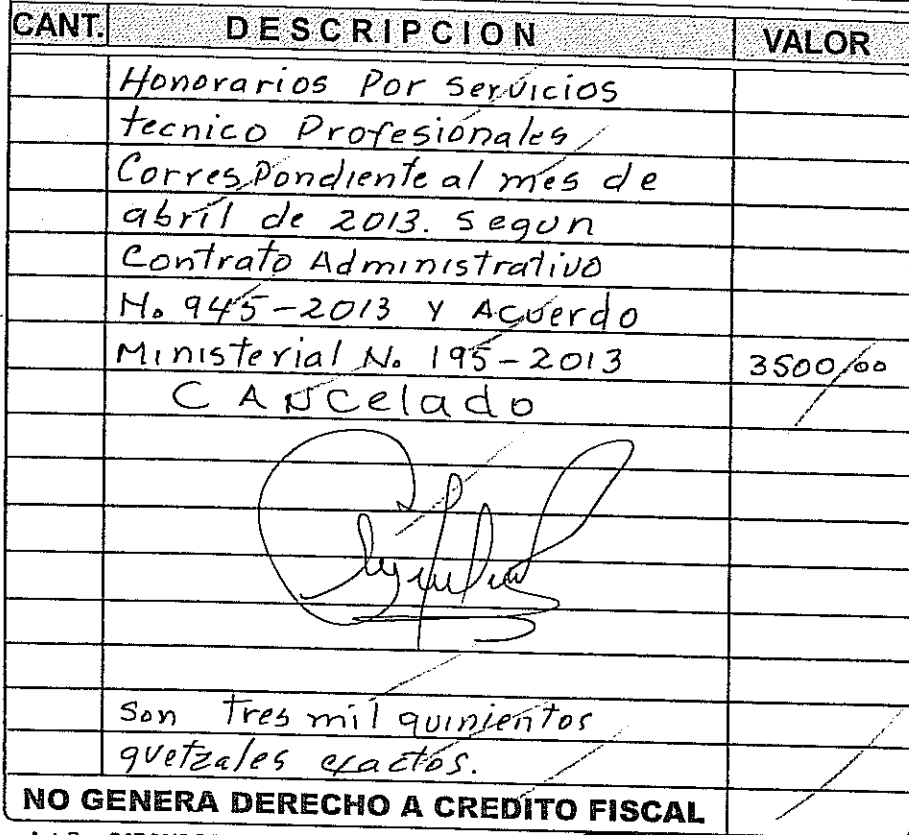 CANT. DESCRIPCION VALOR
Honorarios Por Servicios
tecnico Profesionales
Correspondiente al mes de
abril de 2013. Segun
Contrato Administrativo
No 945-2013 Y Acuerdo
Ministerial No. 195-2013 3500/00
CANCelado
Son Tres mil quinientos
quetzales exactos.
NO GENERA DERECHO A CREDITO FISCAL